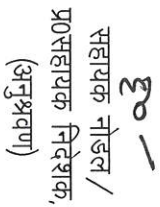 सहायक नोडल/
प्र0सहायक निदेशक,
(अनुश्रवण)